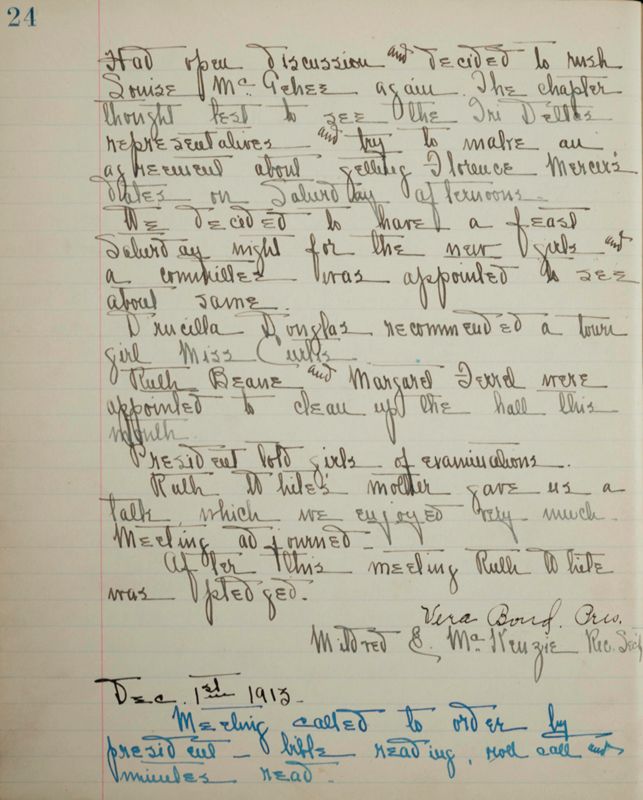 24
Had open discussion and decided to rush
Louise McGehee again. The chapter
thought best to see the Tri Deltas
representatives and try to make an
agreement about getting Florence Mercer's
dates on Saturday afternoons.
We decided to have a feast
Saturday night for the new girls and
a committee was appointed to see
about same.
Drucilla Douglas recommended a town
girl Miss Curtis.
Ruth Beane and Margaret Terrel were
appointed to clean up the hall this
month.
President told girls of examinations.
Ruth White's mother gave us a
talk, which we enjoyed very much.
Meeting adjourned.
After this meeting Ruth White
was pledged.
Vera Bond, Pres.
Mildred E. McKenzie Rec. Sec.
Dec. 1st 1913.
Meeting called to order by
president - bible reading, roll call and
minutes read.